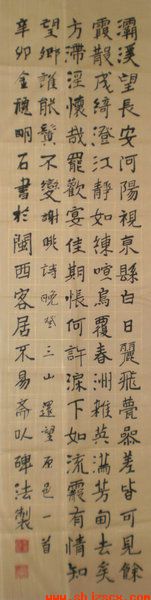 灞涘望長安河陽視京縣白日麗飛甍參差皆可見餘
霞散成綺澄江靜如練喧鳥覆春洲雜英滿芳甸去矣
方滯淫懷哉罷歡宴佳期悵何許淚下如流霰有情知
望鄉誰能鬒不變謝朓詩晚登三山還望京邑一首
辛卯金穐明石書於閩西客居不易齋以碑法製